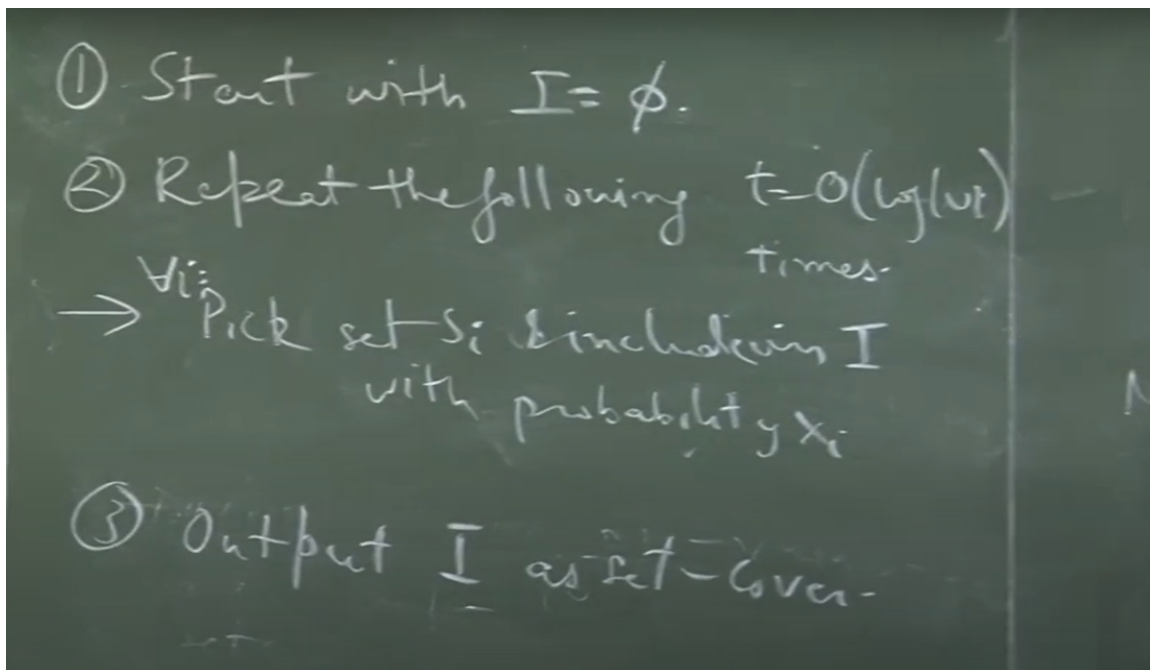 ① Start with I = ϕ.
② Repeat the following t = O(log |U|)
times.
∀i:
→ Pick set Si & include in I
with probability xi
③ Output I as set-cover.